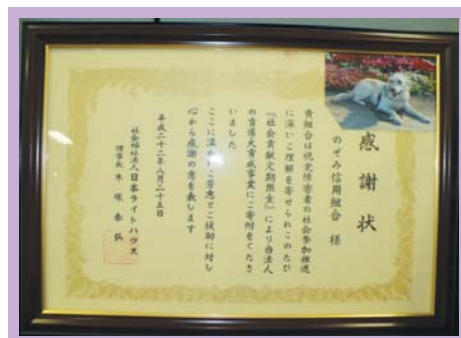 感謝状
のぞみ信用組合 様
貴組合は視覚障害者の社会参加推進
に深いご理解を寄せられこのたび
『社会貢献定期預金』により当法人
の盲導犬育成事業にご寄附をくださ
いました
ここに温かいご芳志とご援助に対し
心から感謝の意を表します
平成二十二年八月二十五日
社会福祉法人 日本ライトハウス
理事長 木塚泰弘